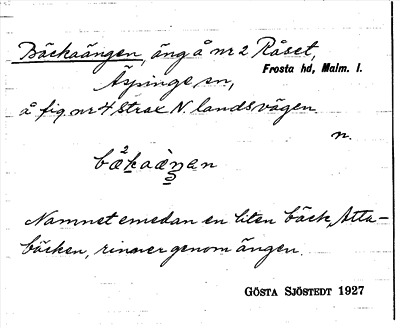 Bäckaängen, äng å nr 2 Råset,
Frosta hd, Malm. l.
Äspinge sn,
å fig. nr 4 strax N. landsvägen.
n.
Namnet emedan en liten bäck, Atta-
bäcken, rinner genom ängen.
GÖSTA SJÖSTEDT 1927